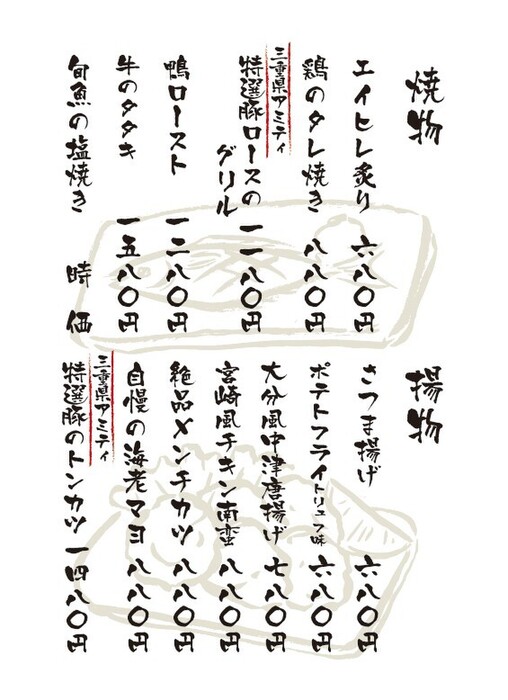 焼物
エイヒレ炙り 六八〇円
鶏のタレ焼き 八八〇円
三重県アミティ
特選豚ロースの
グリル 一一八〇円
鴨ロースト 一二八〇円
牛のタタキ 一五八〇円
旬魚の塩焼き 時価
揚物
さつま揚げ 六八〇円
ポテトフライトリュフ味 六八〇円
大分風中津唐揚げ 七八〇円
宮崎風チキン南蛮 八八〇円
絶品メンチカツ 八八〇円
自慢の海老マヨ 八八〇円
三重県アミティ
特選豚のトンカツ 一四八〇円